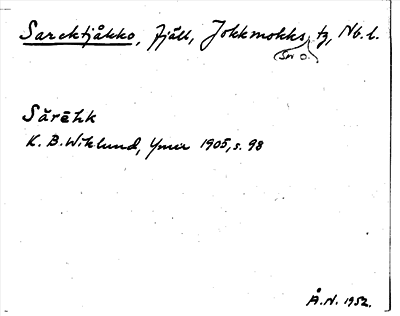 Sarektjåkko, fjäll, Jokkmokks tg, Nb. l.
(Sn o.)
Sărēhk
K. B. Wiklund, Ymer 1905, s. 98
Å. N. 1952.